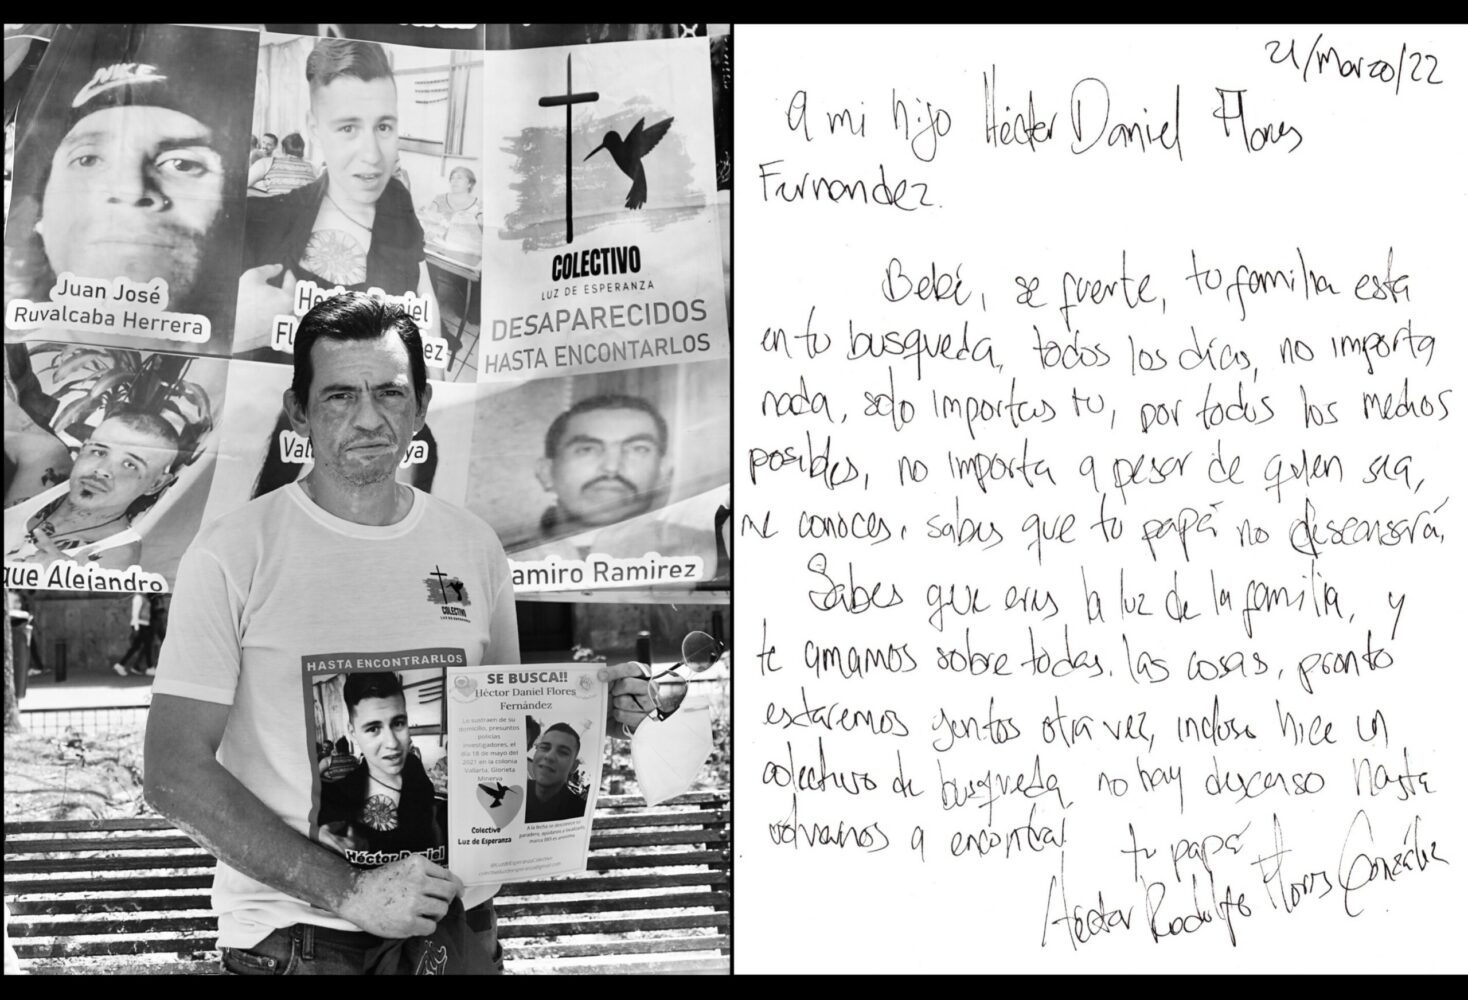 NIKE
Juan José
Ruvalcaba Herrera
COLECTIVO
LUZ DE ESPERANZA
DESAPARECIDOS
HASTA ENCONTARLOS
que Alejandro
amiro Ramirez
COLECTIVO
LUZ DE ESPERANZA
HASTA ENCONTRARLOS
Héctor Daniel
SE BUSCA!!
Héctor Daniel Flores
Fernández
Lo sustraen de su
domicilio, presuntos
policías
investigadores, el
día 18 de mayo del
2021 en la colonia
Vallarta, Glorieta
Minerva
Colectivo
Luz de Esperanza
A la fecha se desconoce su
paradero, ayúdanos a localizarlo,
21/Marzo/22
A mi hijo Héctor Daniel Flores
Fernandez.
Bebé, se fuerte, tu familia está
en tu busqueda, todos los días, no importa
nada, solo importas tu, por todos los medios
posibles, no importa a pesar de quien sea,
me conoces, sabes que tu papá no descansará,
Sabes que eres la luz de la familia, y
te amamos sobre todas las cosas, pronto
estaremos juntos otra vez, incluso hice un
colectivo de busqueda, no hay descanso hasta
volvernos a encontrar
tu papá
Héctor Rodolfo Flores González